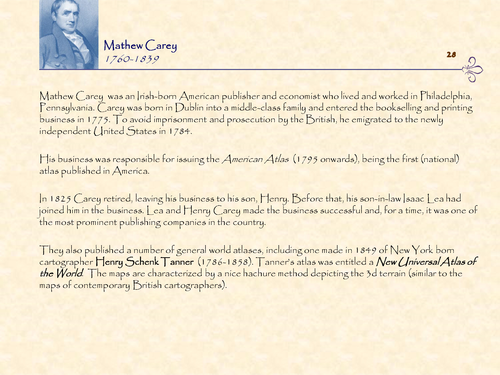 Mathew Carey
1760-1839
28
Mathew Carey was an Irish-born American publisher and economist who lived and worked in Philadelphia,
Pennsylvania. Carey was born in Dublin into a middle-class family and entered the bookselling and printing
business in 1775. To avoid imprisonment and prosecution by the British, he emigrated to the newly
independent United States in 1784.
His business was responsible for issuing the American Atlas (1795 onwards), being the first (national)
atlas published in America.
In 1825 Carey retired, leaving his business to his son, Henry. Before that, his son-in-law Isaac Lea had
joined him in the business. Lea and Henry Carey made the business successful and, for a time, it was one of
the most prominent publishing companies in the country.
They also published a number of general world atlases, including one made in 1849 of New York born
cartographer Henry Schenk Tanner (1786-1858). Tanner's atlas was entitled a New Universal Atlas of
the World. The maps are characterized by a nice hachure method depicting the 3d terrain (similar to the
maps of contemporary British cartographers).